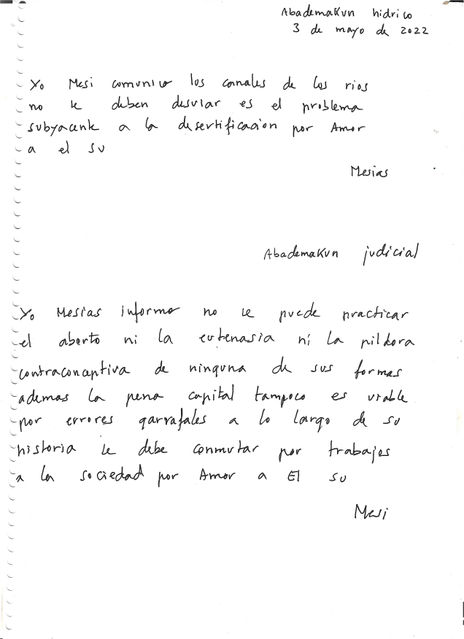 Abademakun hidrico
3 de mayo de 2022
Yo Mesi comunico los canales de los rios
no se deben desviar es el problema
subyacente a la desertificacion por Amor
a el su
Mesias
Abademakun judicial
Yo Mesias informo no se puede practicar
el aborto ni la eutenasia ni la pildora
contraconceptiva de ninguna de sus formas
ademas la pena capital tampoco es viable
por errores garrafales a lo largo de su
historia se debe conmutar por trabajos
a la sociedad por Amor a El su
Mesi